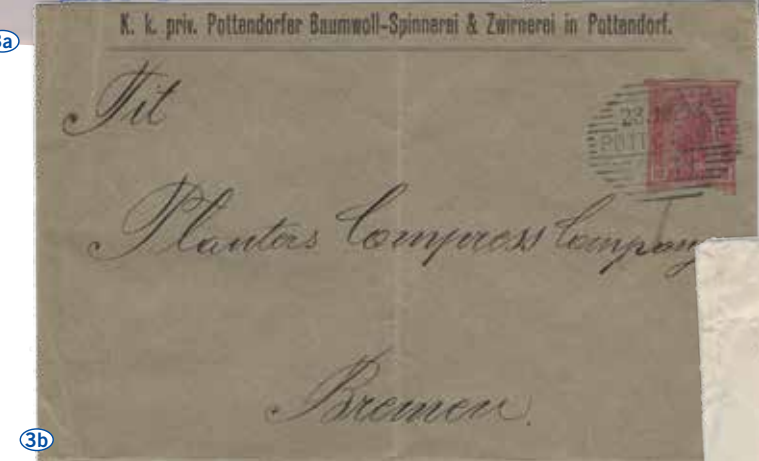 3a
K. k. priv. Pottendorfer Baumwoll-Spinnerei & Zwirnerei in Pottendorf.
Tit
23.
POTT
Planters Compress Company
Bremen.
3b